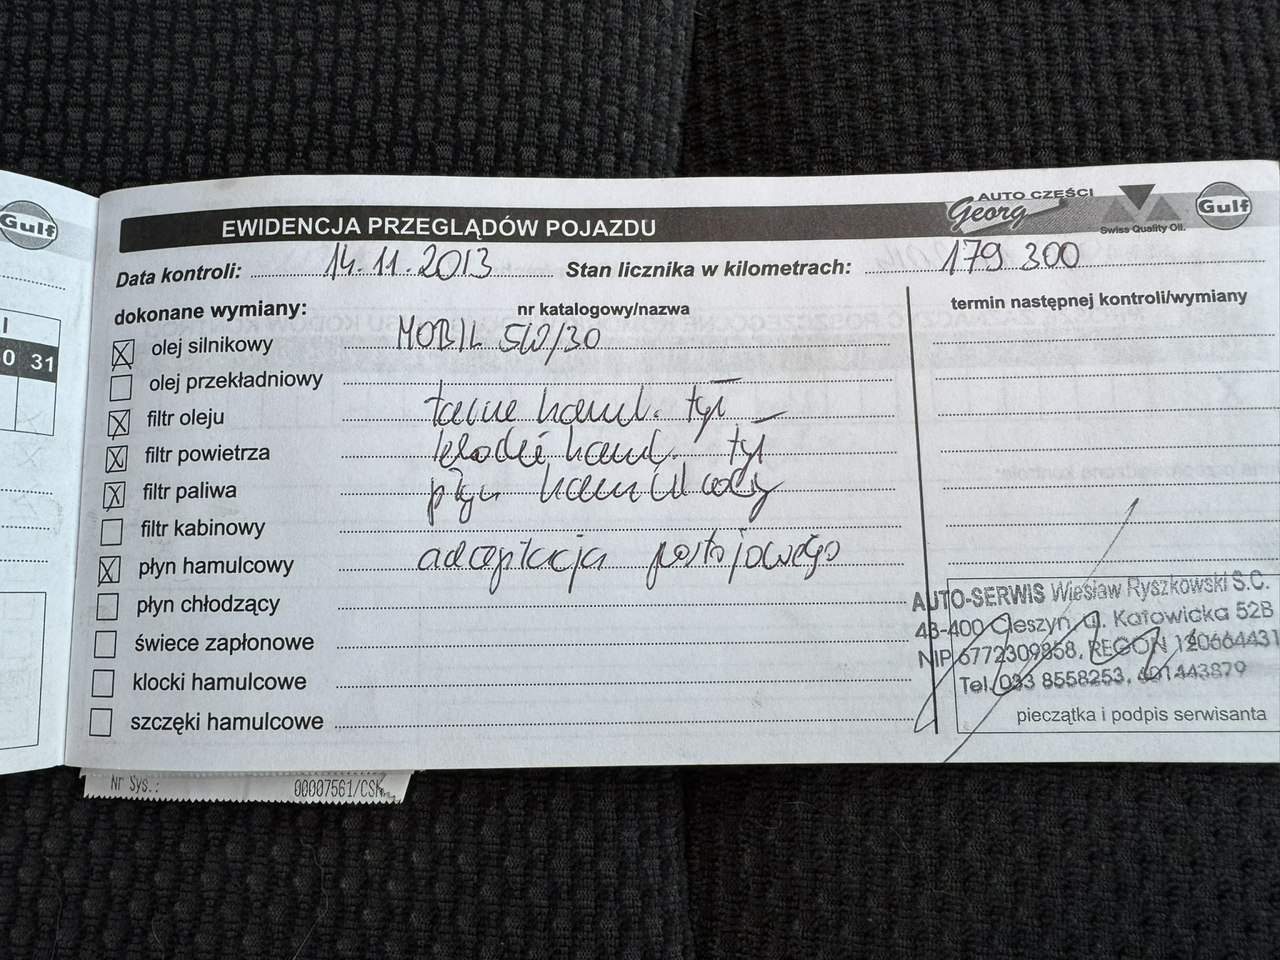 Gulf
EWIDENCJA PRZEGLĄDÓW POJAZDU
AUTO CZĘŚCI
Georg
Swiss Quality Oil.
Gulf
Data kontroli: 14.11.2013 Stan licznika w kilometrach: 179 300
dokonane wymiany: nr katalogowy/nazwa termin następnej kontroli/wymiany
olej silnikowy MOBIL 5W/30
olej przekładniowy
filtr oleju tarcze hamul. tył
filtr powietrza klocki hamul. tył
filtr paliwa płyn hamulcowy
filtr kabinowy
płyn hamulcowy adaptacja postojowego
płyn chłodzący
świece zapłonowe
klocki hamulcowe
szczęki hamulcowe
AUTO-SERWIS Wiesław Ryszkowski S.C.
43-400 Cieszyn, ul. Katowicka 52B
NIP 6772309858, REGON 120664431
Tel. 033 8558253, 601443879
pieczątka i podpis serwisanta
0 31
Nr Sys.: 00007561/CSK